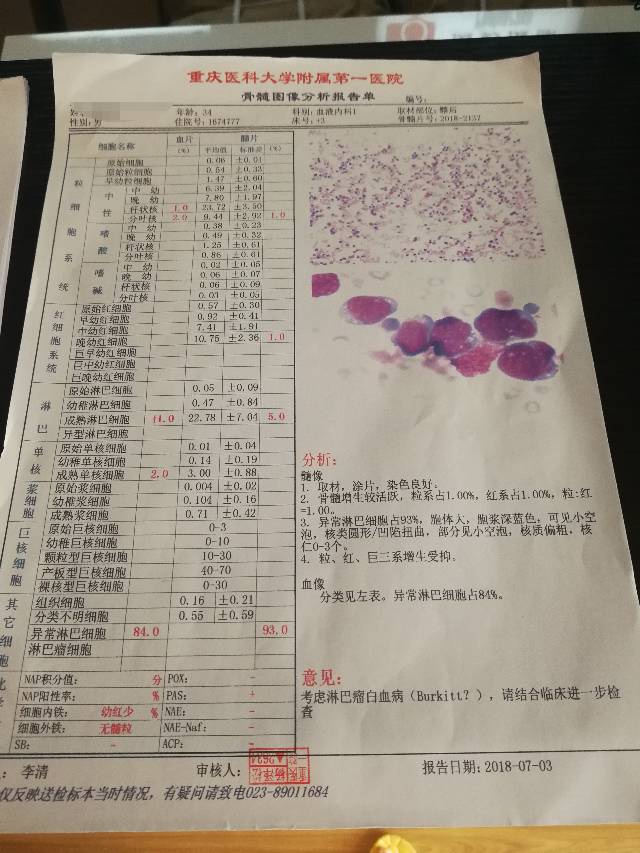 重庆医科大学附属第一医院
骨髓图像分析报告单
编号:
年龄: 34 科别: 血液内科1 取材部位: 髂后
性别: 男 住院号: 1674777 床号: +3 骨髓片号: 2018-2137
细胞名称 血片 (%) 髓片 平均值 标准差 (%)
粒细胞系统
原始细胞 0.06 ±0.01
原始粒细胞 0.54 ±0.33
早幼粒细胞 1.47 ±0.60
中性
中 幼 6.39 ±2.04
晚 幼 7.80 ±1.97
杆状核 1.0 23.72 ±3.50
分叶核 2.0 9.44 ±2.92 1.0
嗜酸
中 幼 0.38 ±0.23
晚 幼 0.49 ±0.32
杆状核 1.25 ±0.61
分叶核 0.86 ±0.61
嗜碱
中 幼 0.02 ±0.05
晚 幼 0.06 ±0.07
杆状核 0.06 ±0.09
分叶核 0.03 ±0.05
红细胞系统
原始红细胞 0.57 ±0.30
早幼红细胞 0.92 ±0.41
中幼红细胞 7.41 ±1.91
晚幼红细胞 10.75 ±2.36 1.0
巨早幼红细胞
巨中幼红细胞
巨晚幼红细胞
淋巴
原始淋巴细胞 0.05 ±0.09
幼稚淋巴细胞 0.47 ±0.84
成熟淋巴细胞 11.0 22.78 ±7.04 5.0
异型淋巴细胞
单核
原始单核细胞 0.01 ±0.04
幼稚单核细胞 0.14 ±0.19
成熟单核细胞 2.0 3.00 ±0.88
浆细胞
原始浆细胞 0.004 ±0.02
幼稚浆细胞 0.104 ±0.16
成熟浆细胞 0.71 ±0.42
巨核细胞
原始巨核细胞 0-3
幼稚巨核细胞 0-10
颗粒型巨核细胞 10-30
产板型巨核细胞 40-70
裸核型巨核细胞 0-30
其它细胞
组织细胞 0.16 ±0.21
分类不明细胞 0.55 ±0.59
异常淋巴细胞 84.0 93.0
淋巴瘤细胞
NAP积分值: 分 POX: -
NAP阳性率: % PAS: +
细胞内铁: 幼红少 % NAE: -
细胞外铁: 无髓粒 NAE-Naf: -
SB: - ACP: -
分析:
髓像
1. 取材, 涂片, 染色良好。
2. 骨髓增生较活跃, 粒系占1.00%, 红系占1.00%, 粒:红
=1.00。
3. 异常淋巴细胞占93%, 胞体大, 胞浆深蓝色, 可见小空
泡, 核类圆形/凹陷扭曲, 部分见小空泡, 核质偏粗, 核
仁0-3个。
4. 粒、红、巨三系增生受抑。
血像
分类见左表。异常淋巴细胞占84%。
意见:
考虑淋巴瘤白血病(Burkitt?), 请结合临床进一步检
查
: 李清 审核人: 报告日期: 2018-07-03
仅反映送检标本当时情况, 有疑问请致电023-89011684